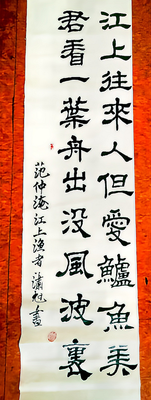 江上往來人但愛鱸魚美
君看一葉舟出没風波裏
范仲淹江上漁者潇旭書